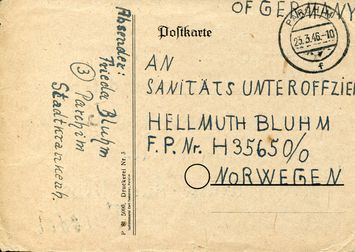 OF GERMANY
Absender:
Frieda Bluhm
(3) Parchim
Stadtkrankenh.
Postkarte
PARCHIM
23.3.46.-10
f
AN
SANITÄTSUNTEROFFZIE
HELLMUTH BLUHM
F.P. Nr. H35650/0
NORWEGEN
P 5000, Druckerei Nr. 3